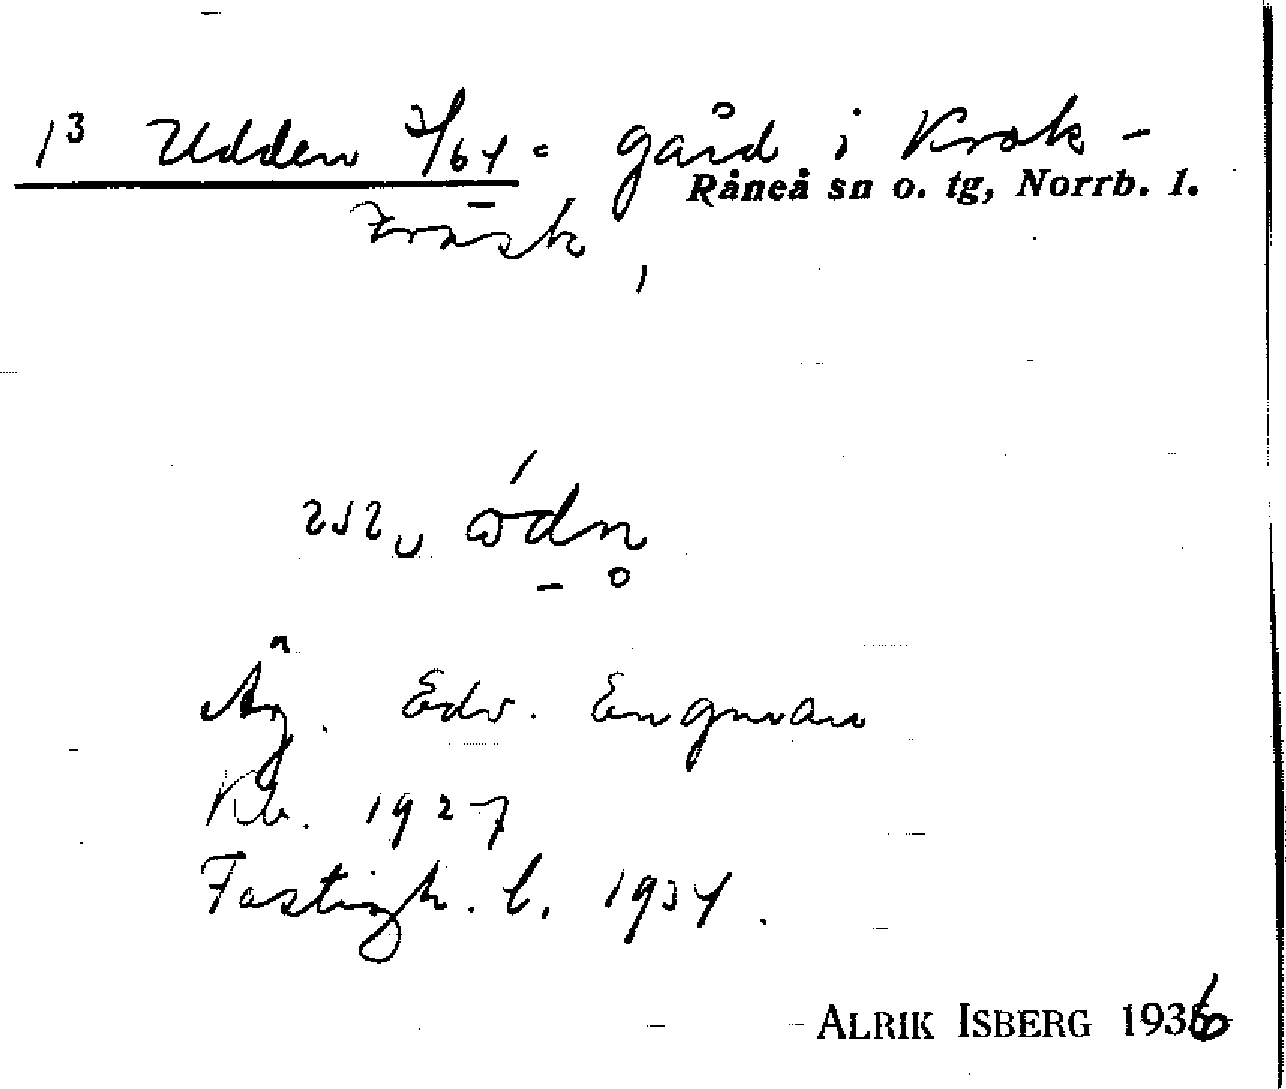 1³ Udden 3/64 = gård i Krok-
Råneå sn o. tg, Norrb. l.
träsk,
ɷ́dn
Äg. Edv. Engman
Kb. 1927
Fastigh. l. 1934.
ALRIK ISBERG 1936